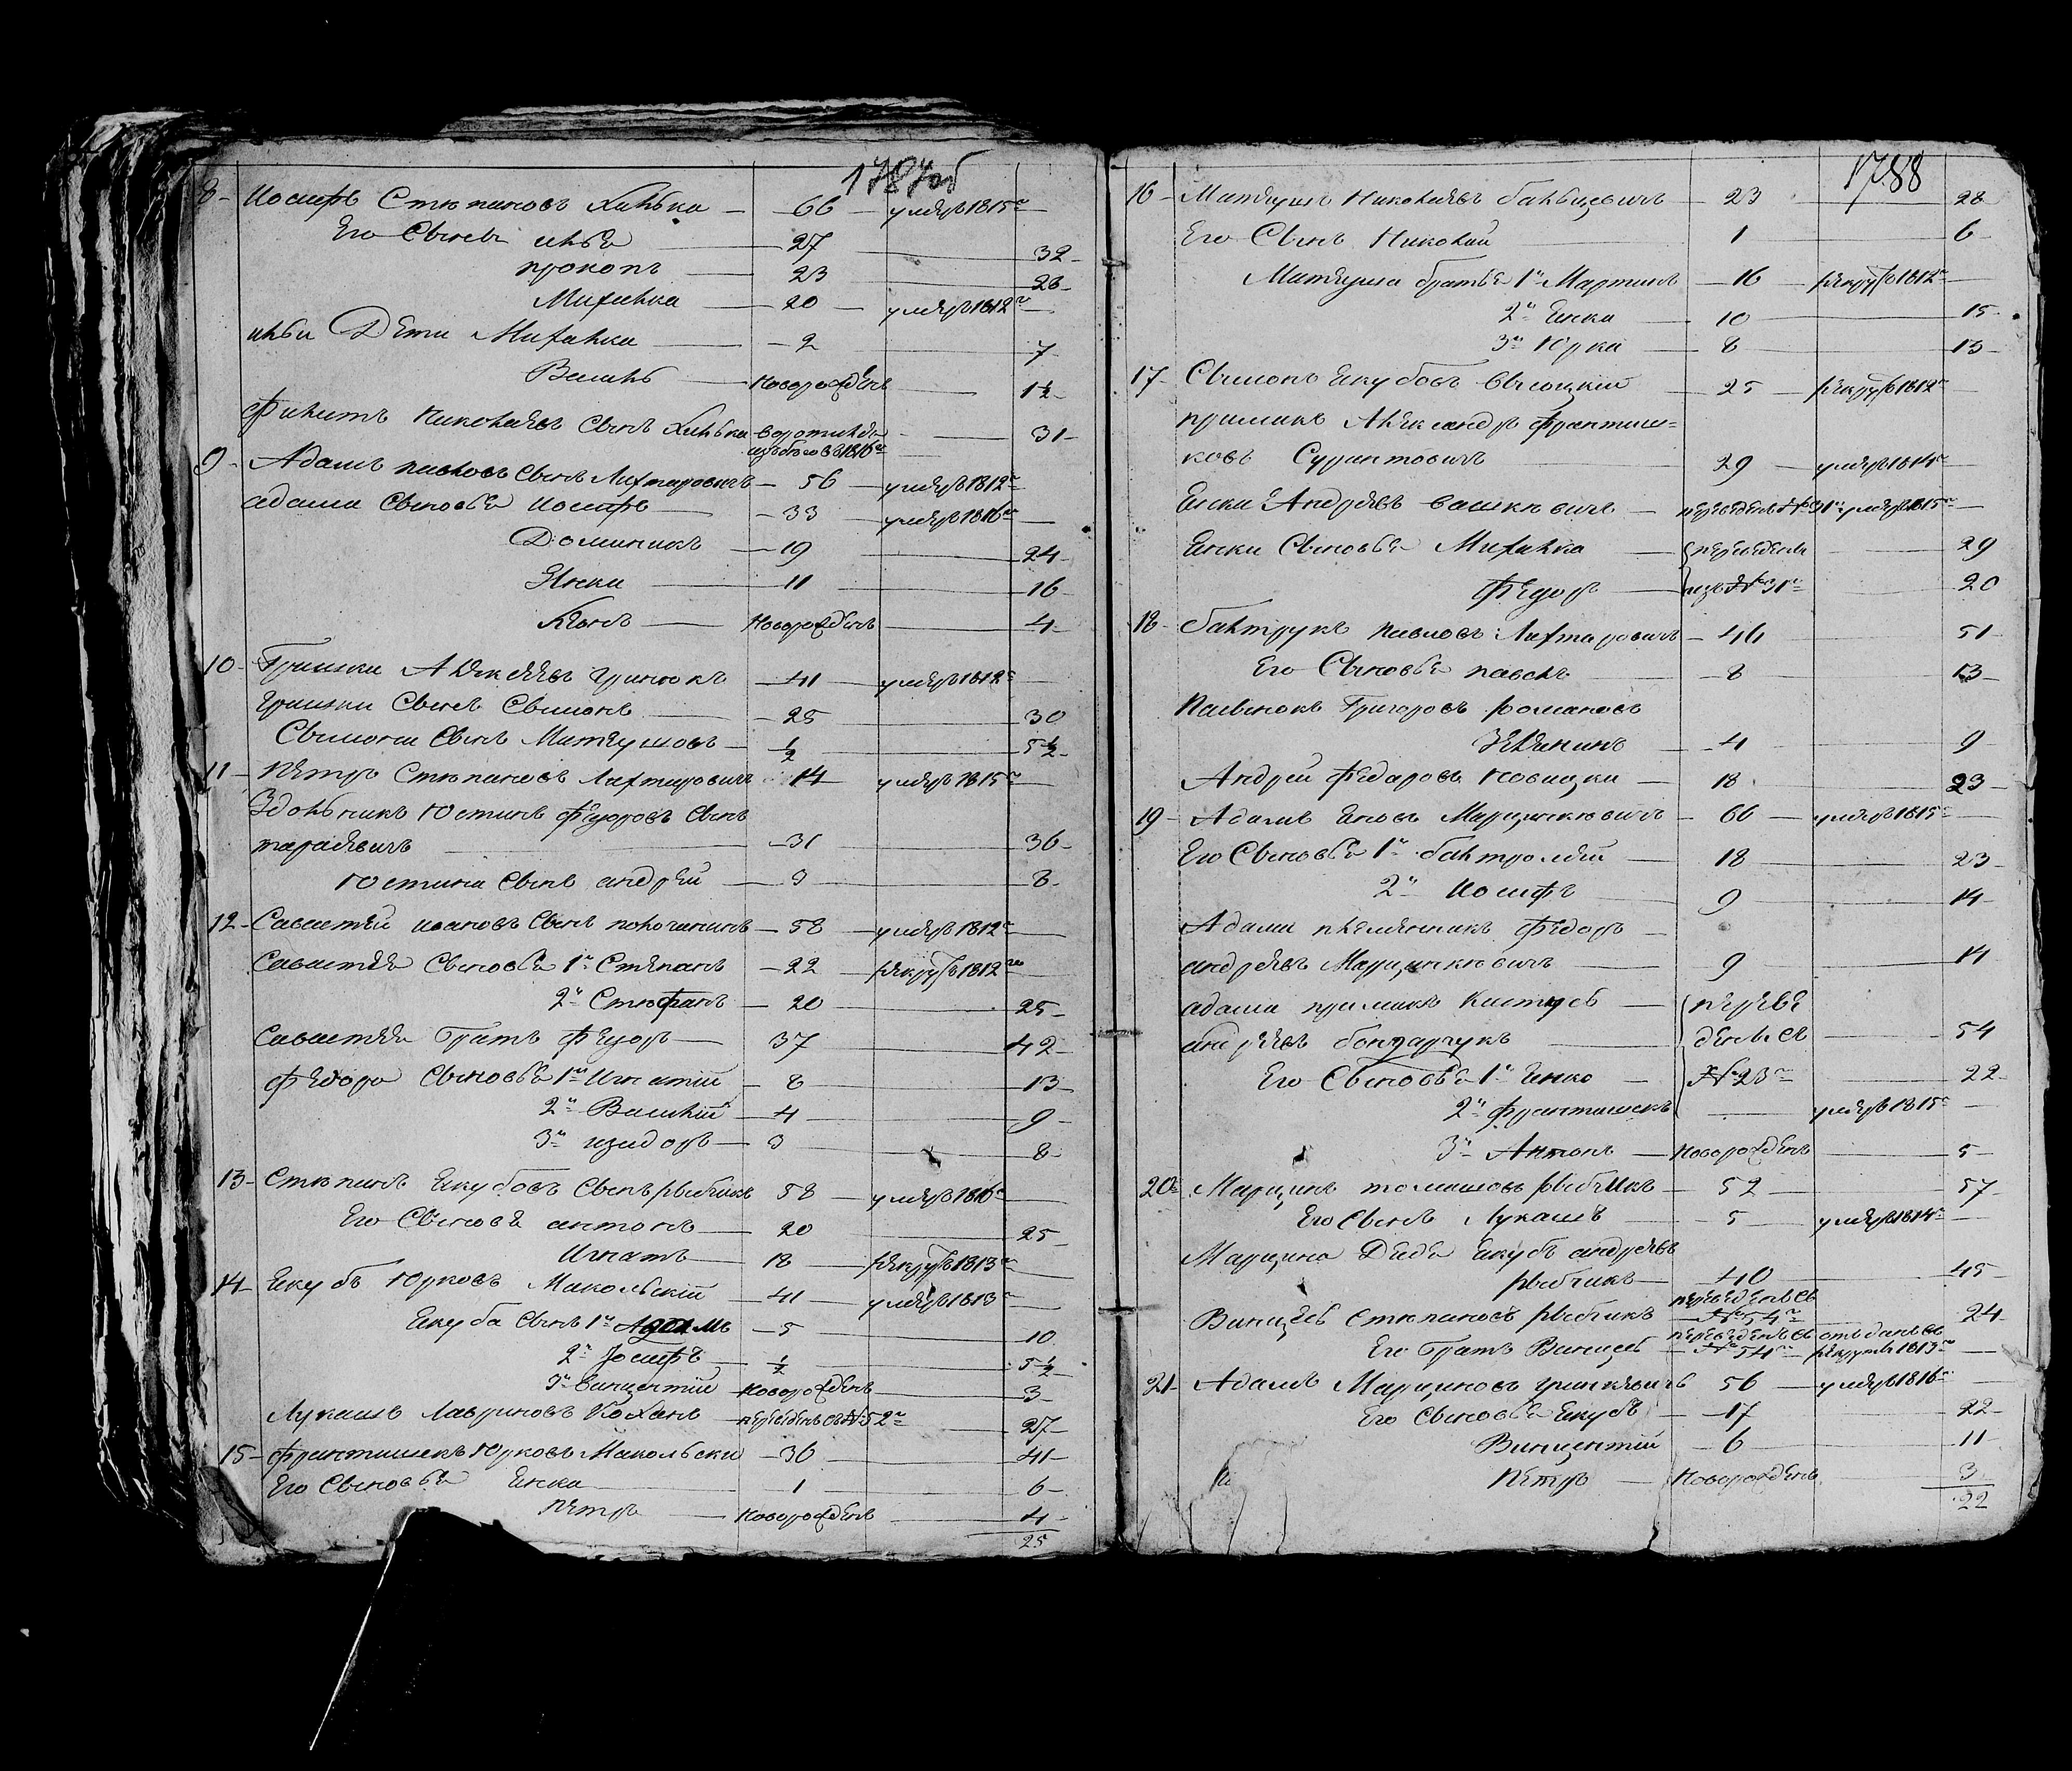 1787об
8 - Иосифъ Степановъ Хилька - 66 - умеръ 1815го -
Его Сыновья Илья - 27 - 32 -
прокопъ - 23 - 28 -
Михалка - 20 - умеръ 1812го -
Ильи Дети Михалка - 2 - 7 -
Василь - Новорожденъ - 1½ -
Филипъ Николаевъ Сынъ Хилька - воротился - 31 -
изъ бегов 1816го
9 - Адамъ павловъ Сынъ Лихтаровичъ - 56 - умеръ 1812го
адама Сыновья Иосифъ - 33 - умеръ 1816го -
Доминикъ - 19 - 24 -
Янка - 11 - 16 -
- Новорожденъ - 4 -
10 - Гришка Алексеевъ гринюкъ - 41 - умеръ 1812го -
гришки Сынъ Сымонъ - 25 - 30
Сымона Сынъ Матеушовъ - ½ - 5½ -
11 - Петръ Степановъ Лихтаровичъ - 14 - умеръ 1815го -
Здольникъ Юстинъ Федоровъ Сынъ
тарасевичъ - 31 - 36 -
Юстина Сынъ андрей - 3 - 8 -
12 - Савастей ивановъ Сынъ полочанинъ - 58 - умеръ 1812го -
Савастея Сыновья 1й Степанъ - 22 - рекрутъ 1812го
2й Стефанъ - 20 - 25 -
Савастея братъ Федоръ - 37 - 42 -
Федора Сыновья 1й Игнатій - 8 - 13 -
2й Василій - 4 - 9 -
3й изидоръ - 3 - 8
13 - Степанъ Якубовъ Сынъ рыбчикъ 58 - умеръ 1816го -
Его Сыновя антонъ - 20 - 25 -
Игнатъ - 18 - рекрутъ 1813го -
14 - Якубъ Юрковъ Макольскій - 41 - умеръ 1813го -
Якуба Сынъ 1й Адамъ - 5 - 10
2й Іосифъ - ½ - 5½ -
3й Винцентій - Новорожденъ - 3 -
Лукашъ Лавриновъ Коханъ - переведенъ съ № 52го - 27 -
15 - Франтишекъ Юрковъ Макольски - 36 - 41 -
Его Сыновья Янка - 1 - 6 -
Петръ - Новорожденъ - 4 -
25
1788
16 - Матеушъ Николаевъ бальцевичъ - 23 - 28
Его Сынъ Николай - 1 - 6 -
Матеуша братья 1й Мартинъ - 16 - рекрутъ 1812го -
2й Янка - 10 - 15 -
3й Юрка - 8 - 13 -
17 - Сымонъ Якубовъ высоцкій - 25 - рекрутъ 1812го
примакъ Александръ франтиш=
ковъ Сурантовичъ - 29 - умеръ 1814го -
Янка Андреевъ вашкевичъ - переведенъ № 31го умеръ 1815го -
Янки Сыновья Михалка - переведены - 29
Федоръ - изъ № 31го - 20
18 - балтрукъ павловъ Лихтаровичъ - 46 - 51 -
Его Сыновья павелъ - 8 - 13 -
Павлюкъ Григоровъ романовъ
- 4 - 9
Андрей Федаровъ Новицки - 18 - 23 -
19 - Адамъ Яновъ Марцинкевичъ - 66 - умеръ 1815го -
Его Сыновья 1й балтромей - 18 - 23 -
2й Иосифъ - 9 - 14 -
Адама племенникъ Федоръ -
андреевъ Марцинкевичъ - 9 - 14
адама примакъ Кастусь - переве
андреевъ бондарчукъ - денъ съ - 54
Его Сыновья 1й Янка - № 23го - 22 -
2й франтишекъ - умеръ 1815го -
3й Антонъ - Новорожденъ - 5 -
20 - Марцинъ томашовъ рыбчикъ - 52 - 57 -
Его Сынъ Лукашъ - 5 - умеръ 1814го -
Марцина Дядя Якубъ андреевъ
рыбчикъ - 40 - 45 -
Винцесь Степановъ рыбчикъ переведенъ съ № 54го - 24 -
Его братъ Винцесь - переведенъ съ № 54го - отданъ въ рекруты 1813го -
21 - Адамъ Марциновъ гринкевичъ 56 - умеръ 1816го -
Его Сыновья Якубъ - 17 - 22 -
Винцентій - 6 - 11 -
Петръ - Новорожденъ - 3
22